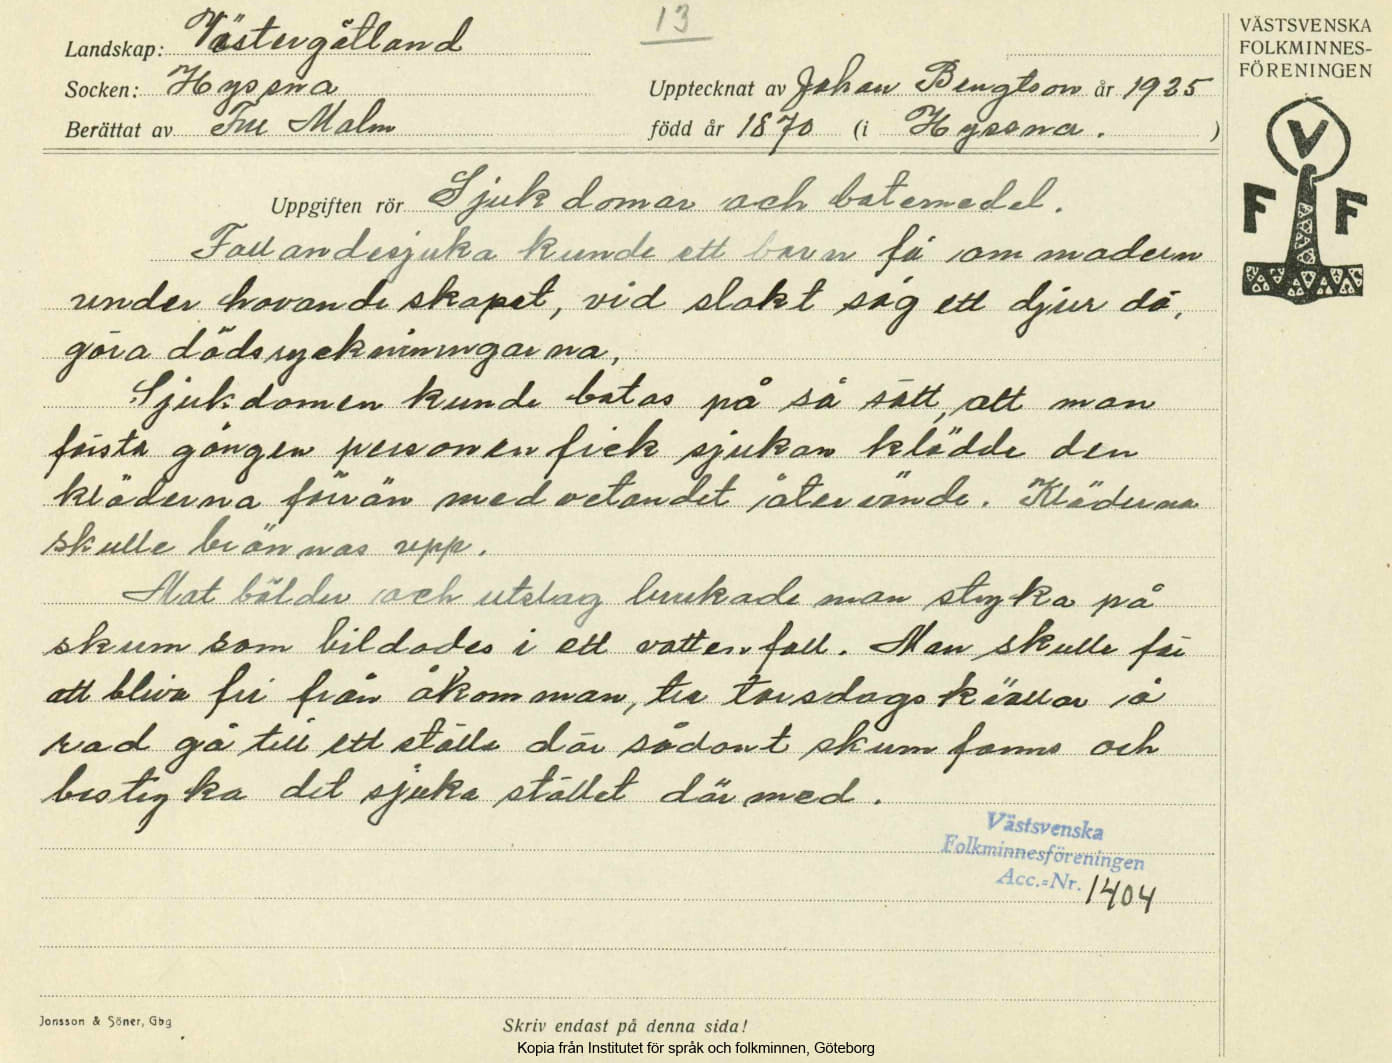 13
Landskap: Västergötland
Socken: Hyssna
Berättat av Fru Malm
Upptecknat av Johan Bengtson år 1925
född år 1870 (i Hyssna. )
VÄSTSVENSKA
FOLKMINNES-
FÖRENINGEN
V
F F
Uppgiften rör Sjukdomar och botemedel.
Fallandesjuka kunde ett barn få om modern
under havandeskapet, vid slakt såg ett djur dö,
göra dödsryckningarna,
Sjukdomen kunde botas på så sätt, att man
första gången personen fick sjukan klädde den
kläderna förrän medvetandet återvände. Kläderna
skulle brännas upp.
Mot bölder och utslag brukade man stryka på
skum som bildades i ett vattenfall. Man skulle för
att bliva fri från åkomman, tre torsdagskvällar å
rad gå till ett ställe där sådant skum fanns och
bestryka det sjuka stället därmed.
Västsvenska
Folkminnesföreningen
Acc.=Nr. 1404
Jonsson & Söner, Gbg
Skriv endast på denna sida!
Kopia från Institutet för språk och folkminnen, Göteborg